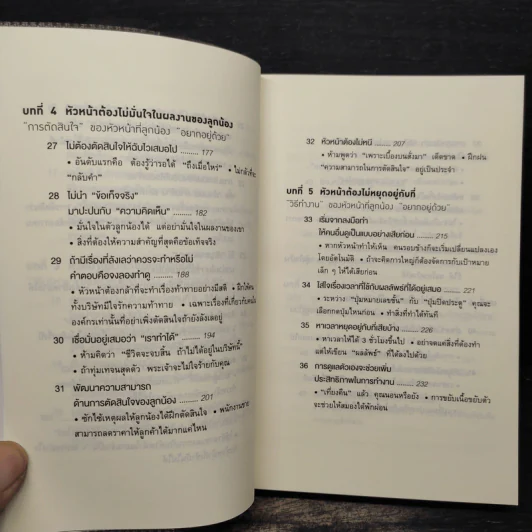 บทที่ 4 หัวหน้าต้องไม่มั่นใจในผลงานของลูกน้อง
"การตัดสินใจ" ของหัวหน้าที่ลูกน้อง "อยากอยู่ด้วย"
27 ไม่ต้องตัดสินใจให้ฉับไวเสมอไป ......... 177
• อันดับแรกคือ ต้องรู้ว่ารอได้ "ถึงเมื่อไหร่" • ไม่กล้าที่จะ
"กลับคำ"
28 ไม่นำ "ข้อเท็จจริง"
มาปะปนกับ "ความคิดเห็น" ......... 182
• มั่นใจในตัวลูกน้องได้ แต่อย่ามั่นใจในผลงานของเขา
• สิ่งที่ต้องให้ความสำคัญที่สุดคือข้อเท็จจริง
29 ถ้ามีเรื่องที่ลังเลว่าควรจะทำหรือไม่
คำตอบคือจงลองทำดู ......... 188
• หัวหน้าต้องกล้าที่จะทำเรื่องท้าทายอย่างมีสติ • ฝึกให้คน
ทั้งบริษัทมีใจรักความท้าทาย • เฉพาะเรื่องที่เกี่ยวกับ
องค์กรเท่านั้นที่อย่าเพิ่งตัดสินใจถ้ายังลังเลอยู่
30 เชื่อมั่นอยู่เสมอว่า "เราทำได้" ......... 194
• ห้ามคิดว่า "ชีวิตจะจบสิ้น ถ้าไม่ได้อยู่ในบริษัทนี้"
• ถ้าทุ่มเทจนสุดตัว พระเจ้าจะไม่ใจร้ายกับคุณ
31 พัฒนาความสามารถ
ด้านการตัดสินใจของลูกน้อง ......... 201
• ซักใช้เหตุผลให้ลูกน้องได้ฝึกตัดสินใจ • พนักงานขาย
สามารถลดราคาให้ลูกค้าได้มากแค่ไหน
32 หัวหน้าต้องไม่หนี ......... 207
• ห้ามพูดว่า "เพราะเบื้องบนสั่งมา" เด็ดขาด • ฝึกฝน
"ความสามารถในการตัดสินใจ" อยู่เป็นประจำ
บทที่ 5 หัวหน้าต้องไม่หยุดอยู่กับที่
"วิธีทำงาน" ของหัวหน้าที่ลูกน้อง "อยากอยู่ด้วย"
33 เริ่มจากลงมือทำ
ให้คนอื่นดูเป็นแบบอย่างเสียก่อน ......... 215
• หากหัวหน้าทำให้เห็น คนรอบข้างก็จะเริ่มเปลี่ยนแปลงเอง
โดยอัตโนมัติ • ถ้าจะคิดการใหญ่ก็ต้องจัดการกับเป้าหมาย
เล็ก ๆ ให้ได้เสียก่อน
34 ใส่ใจเรื่องเวลาที่ใช้กับผลลัพธ์ที่ได้อยู่เสมอ ......... 221
• ระหว่าง "ปุ่มหมายเลขชั้น" กับ "ปุ่มปิดประตู" คุณจะ
เลือกกดปุ่มไหนก่อน • ทำสิ่งที่ทำได้ทันที
35 หาเวลาหยุดอยู่กับที่เสียบ้าง ......... 226
• หาเวลาให้ได้ 3 ชั่วโมงขึ้นไป • อย่าจดแต่สิ่งที่ต้องทำ
แต่ให้เขียน "ผลลัพธ์" ที่ได้ลงไปด้วย
36 การดูแลตัวเองจะช่วยเพิ่ม
ประสิทธิภาพในการทำงาน ......... 232
• "เที่ยงคืน" แล้ว คุณนอนหรือยัง • การขยับเนื้อขยับตัว
จะช่วยให้สมองได้พักผ่อน